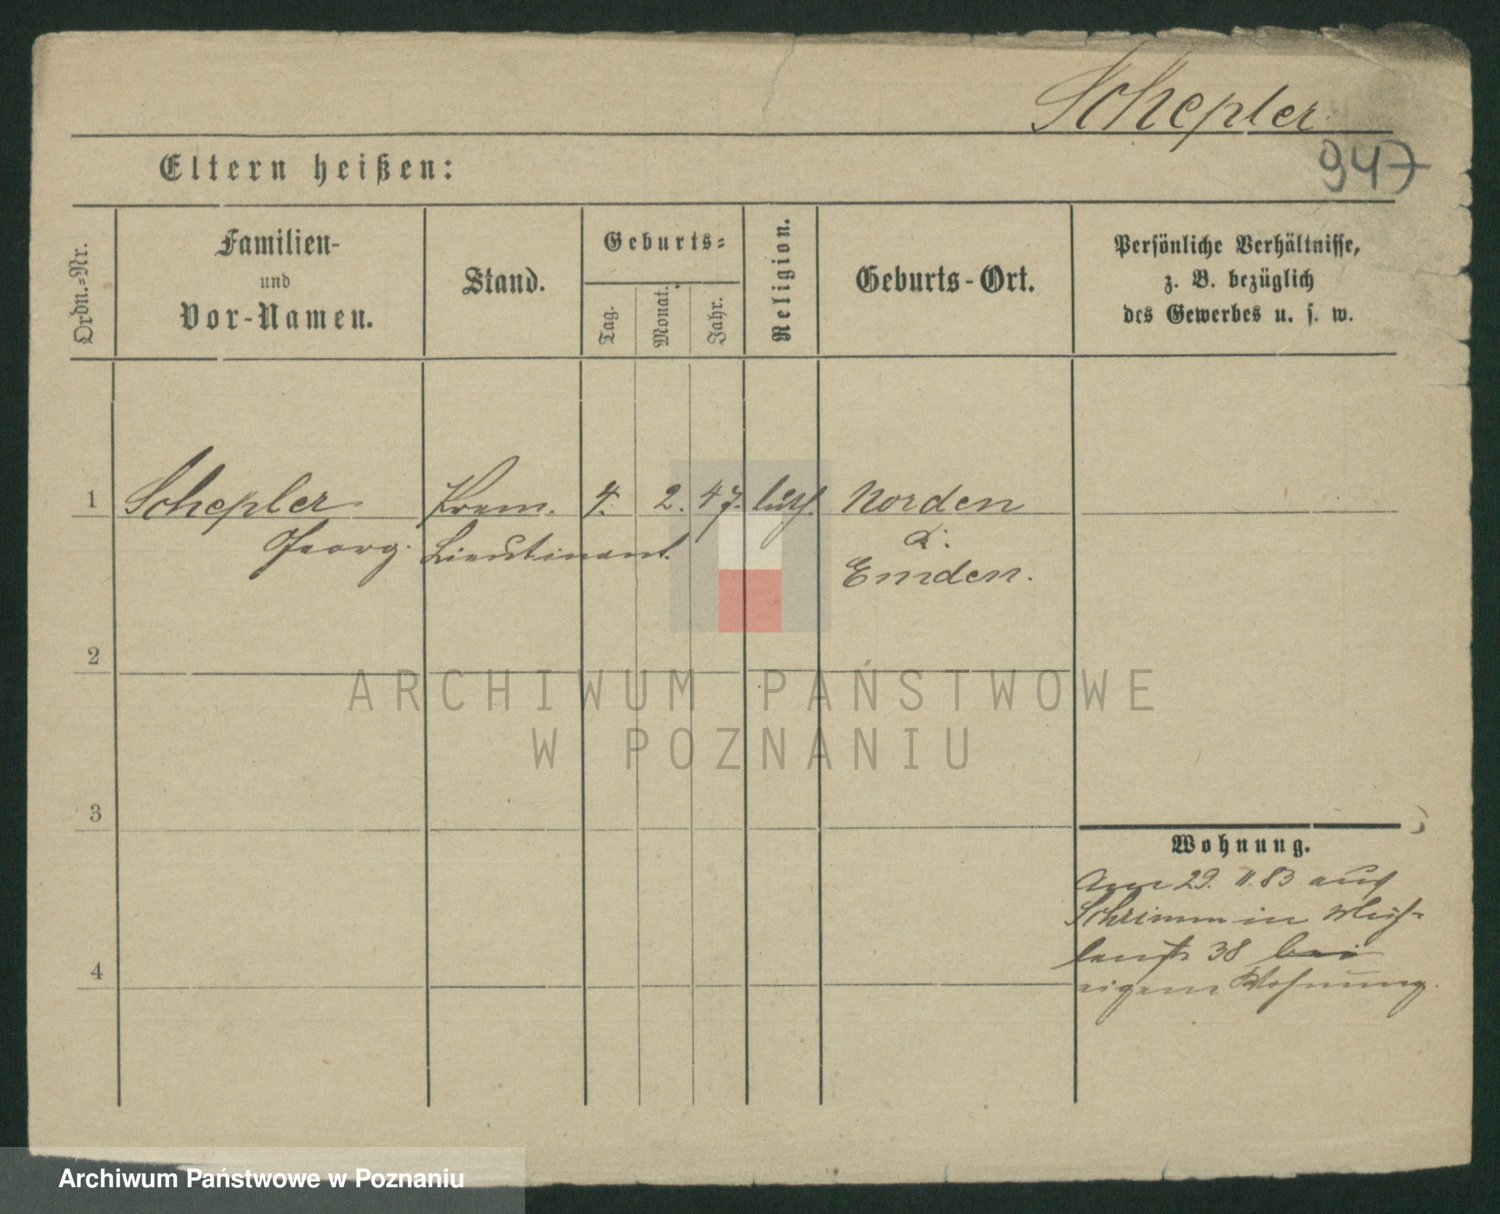 Schepler
947
Eltern heißen:
Ordn.=Nr.
Familien-
und
Vor-Namen.
Stand.
Geburts=
Tag.
Monat.
Jahr.
Religion.
Geburts-Ort.
Persönliche Verhältnisse,
z. B. bezüglich
des Gewerbes u. s. w.
1 Schepler Prem. 4. 2. 47. luth. Norden
Georg. Lieutinant.
Emden.
2
3
4
Wohnung.
Am 29. 11. 83 aus
Schrimm in Müh-
lenstr 38 bei
eigene Wohnung.
ARCHIWUM PAŃSTWOWE
W POZNANIU
Archiwum Państwowe w Poznaniu